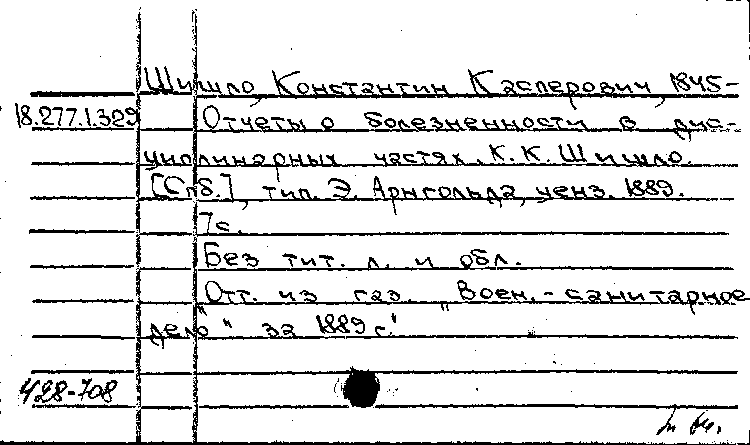 Шишло, Константин Касперович, 1845-
18.277.1.329 Отчеты о болезненности в дис-
циплинарных частях. К. К. Шишло.
[Спб.], тип. Э. Арнгольда, ценз. 1889.
7с.
Без тит. л. и обл.
Отт. из газ. „Воен.-санитарное
дело“ за 1889 г.
428-708